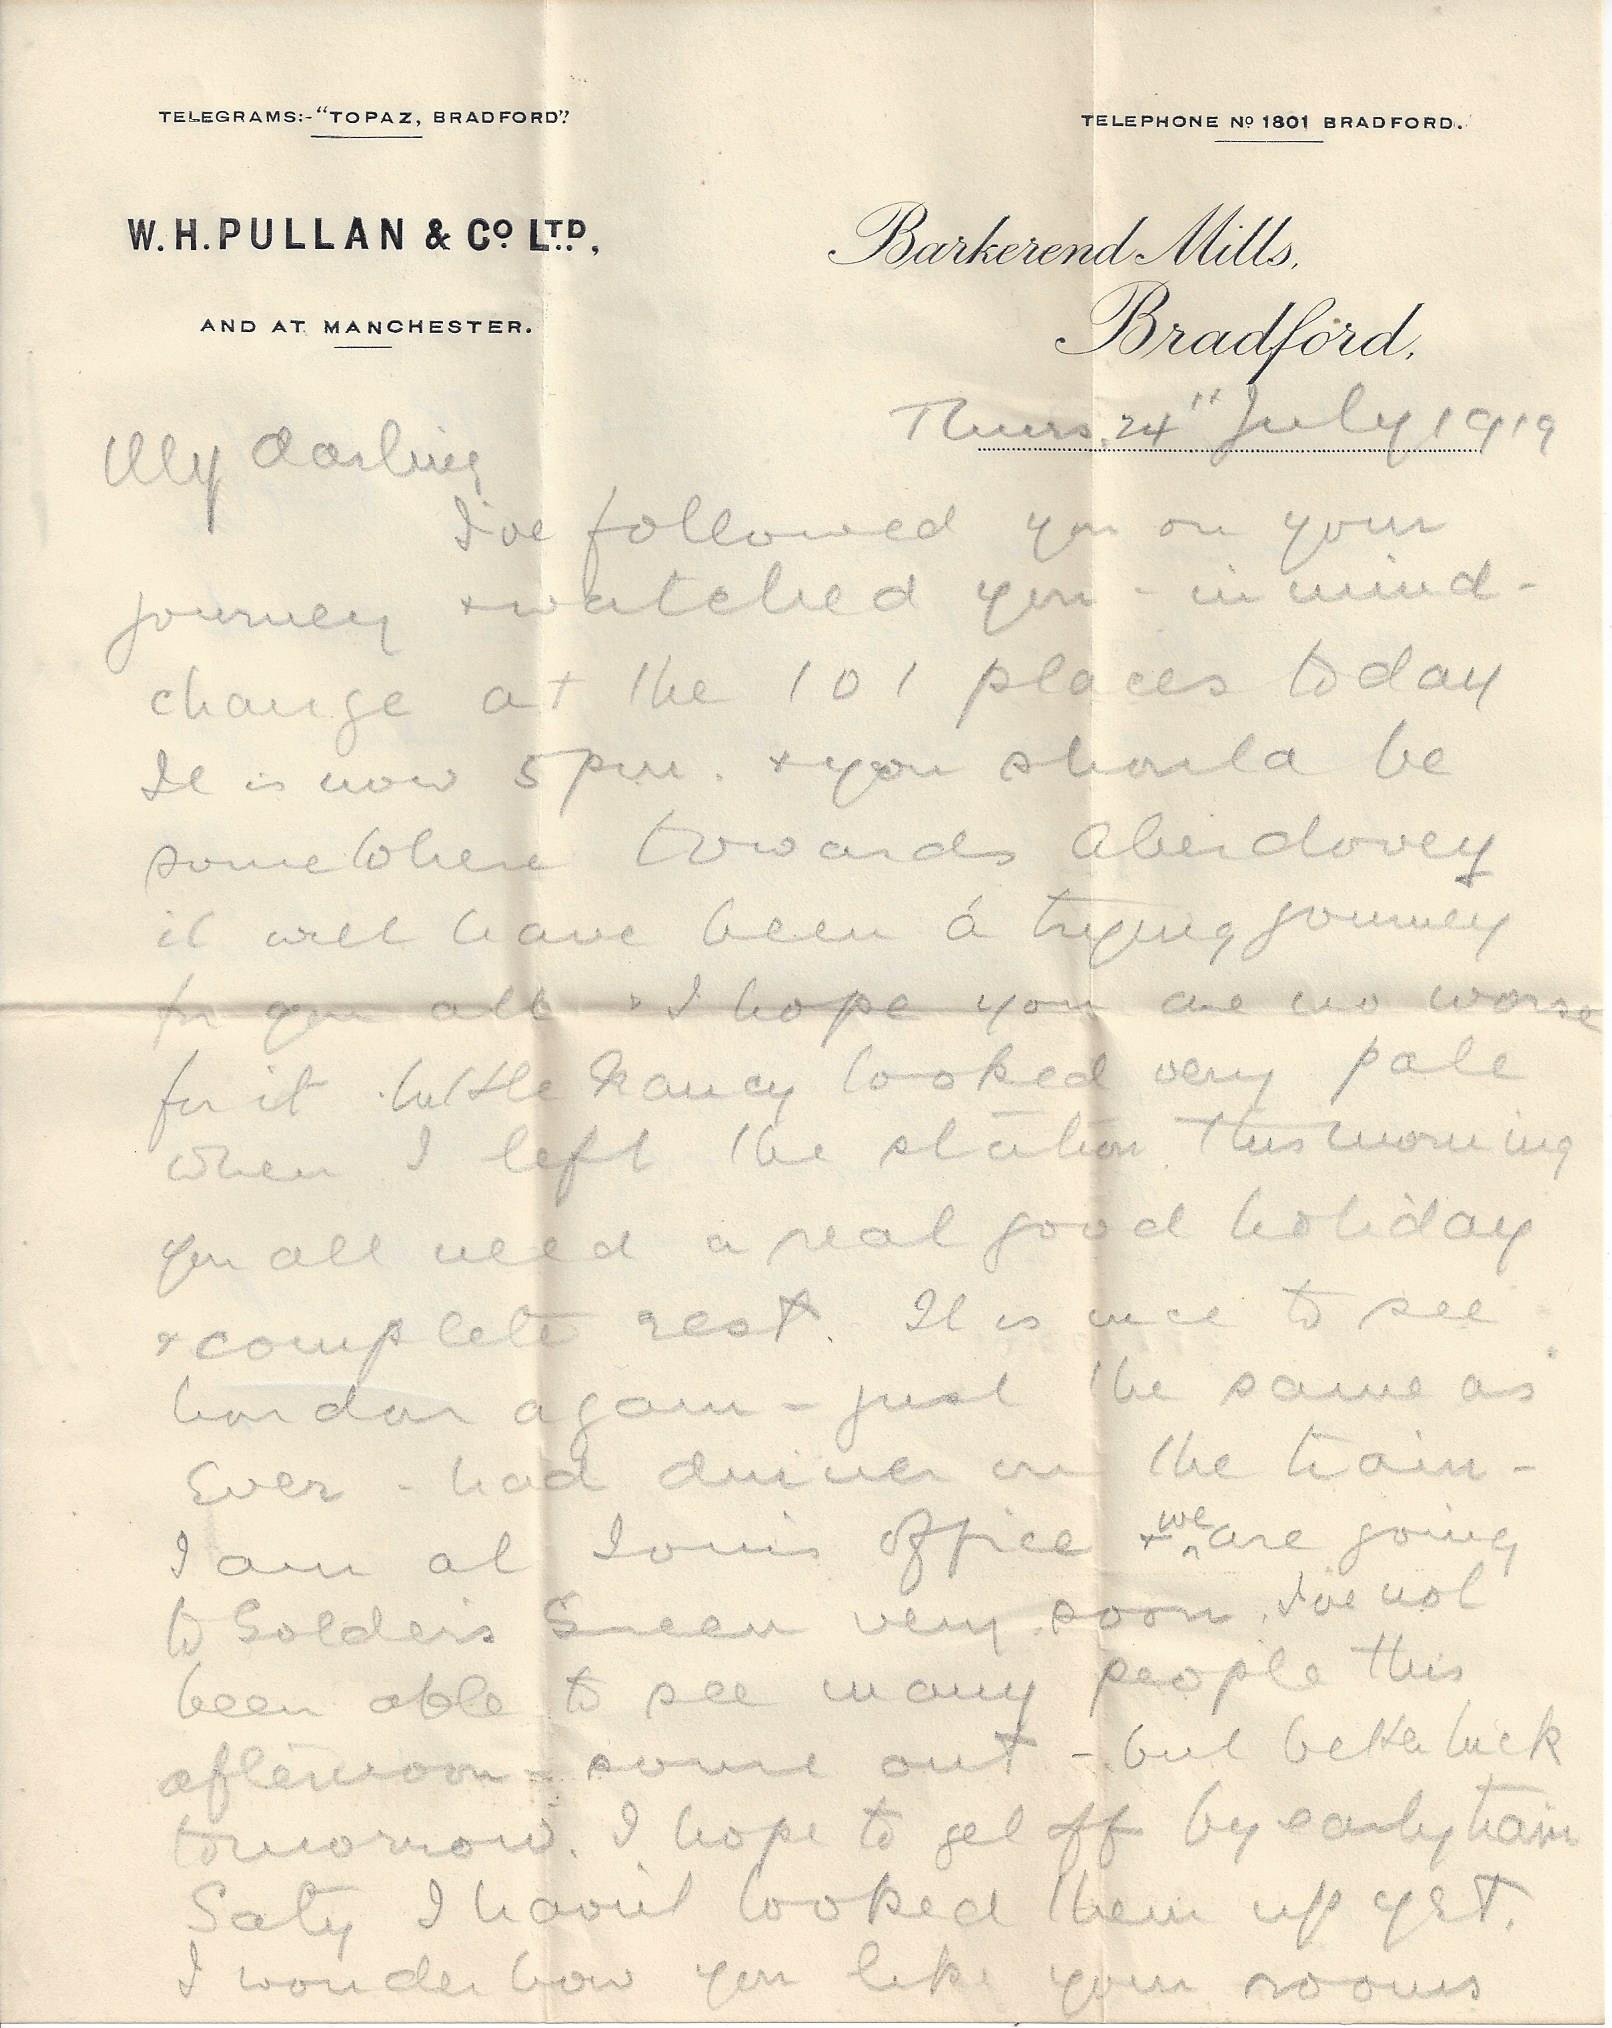 TELEGRAMS:- "TOPAZ, BRADFORD".
TELEPHONE Nº 1801 BRADFORD.
W. H. PULLAN & Cº LTD,
Barkerend Mills,
AND AT MANCHESTER.
Bradford,
Thurs. 24" July 1919
My darling
I've followed you on your
journey + watched you - in mind -
change at the 101 places today
It is now 5 pm. + you should be
somewhere towards Aberdovey
it will have been a trying journey
for you all + I hope you are no worse
for it. Little Nancy looked very pale
when I left the station this morning
you all need a real good holiday
+ complete rest. It is nice to see
London again - just the same as
ever - had dinner on the train -
I am at Tom's office + we are going
to Golders Green very soon. I've not
been able to see many people this
afternoon - some out - but better luck
tomorrow. I hope to get off by early train
Saty I havn't looked them up yet.
I wonder how you like your rooms